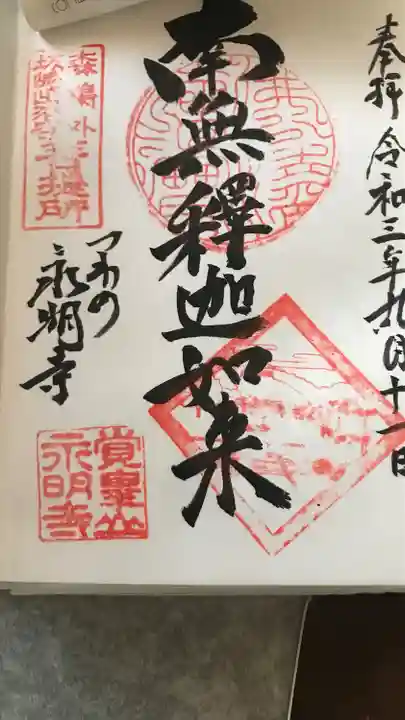 奉拝 令和三年 月十一日
南無釋迦如来
森鴎外之墓所
つわの
永明寺
覚皇山
永明寺